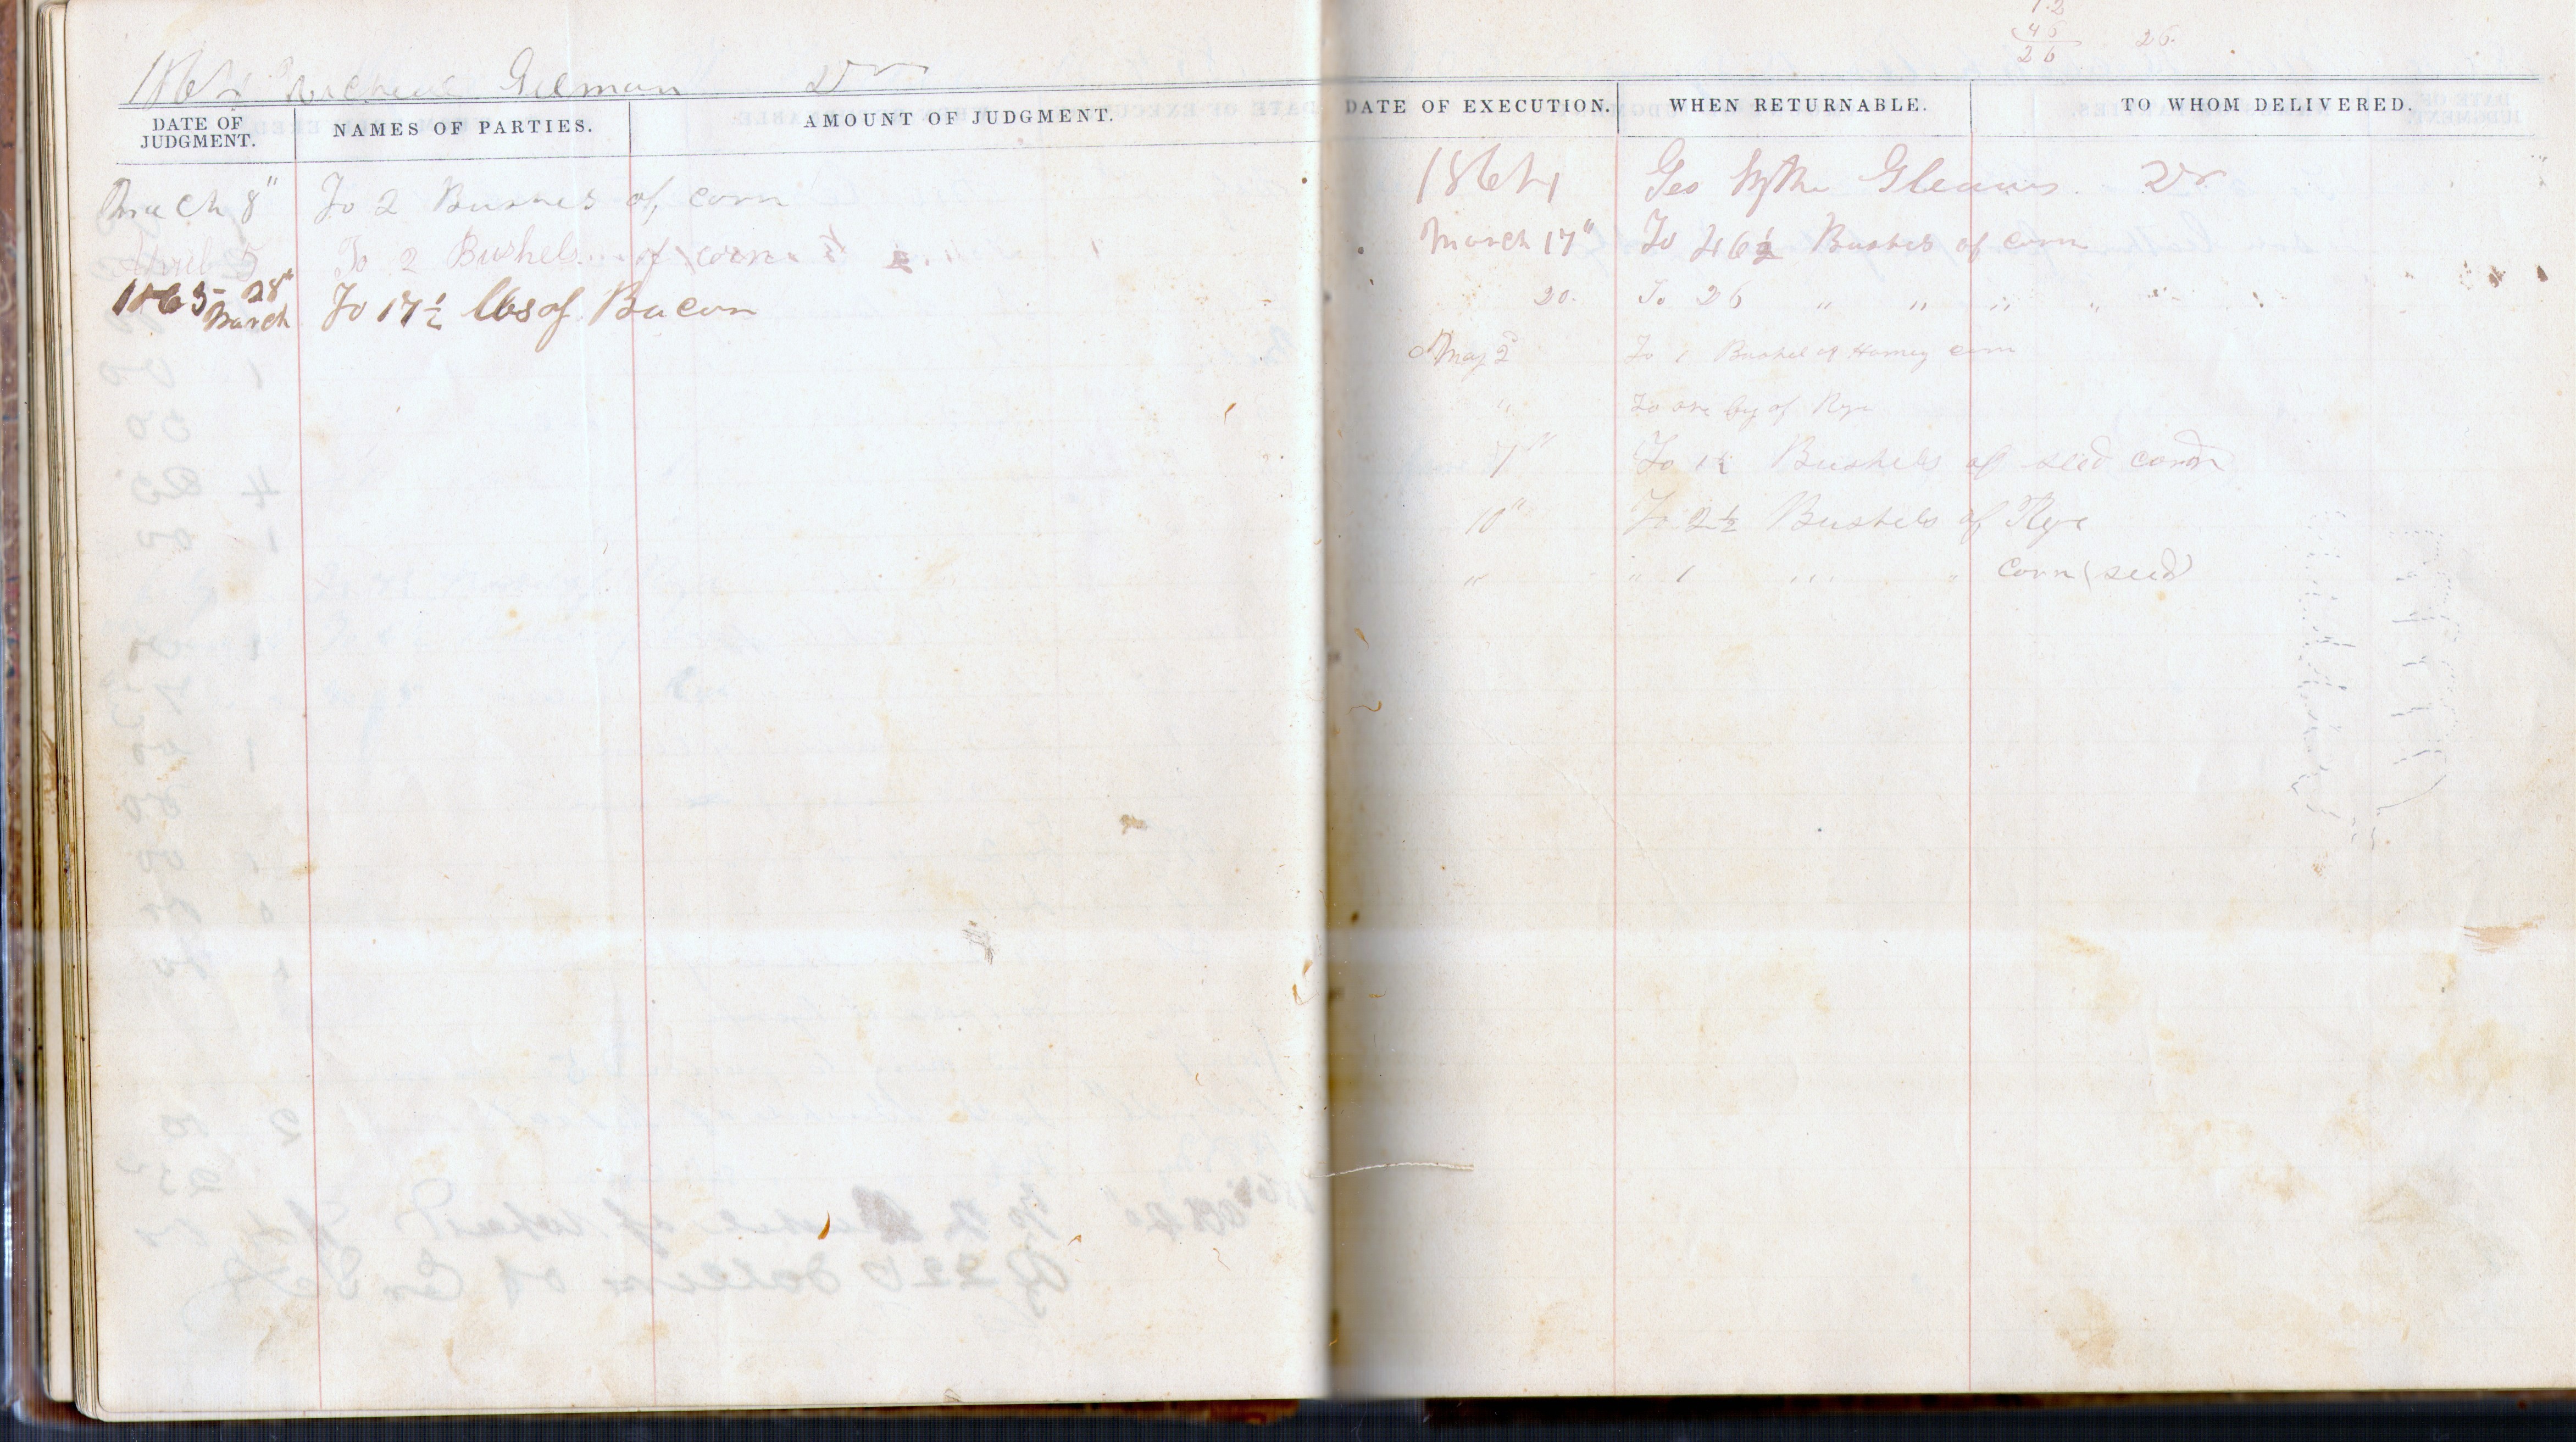 1864 Gilman Dr
DATE OF JUDGMENT.
NAMES OF PARTIES.
AMOUNT OF JUDGMENT.
March 8" To 2 Bushels of corn
April 5 To 2 Bushels of corn
1865 28" March To 17 1/2 lbs of Bacon
12
45
26
26
DATE OF EXECUTION.
WHEN RETURNABLE.
TO WHOM DELIVERED.
1864 Geo Dr
March 17" To 46 1/2 Bushels of corn
20. To 26 " " " "
May 2 To 1 Bushel of Homey corn
" To one of Rye
7" To Bushels of seed corn
10" To 2 1/2 Bushels of Rye
" " 1 " " corn (seed)